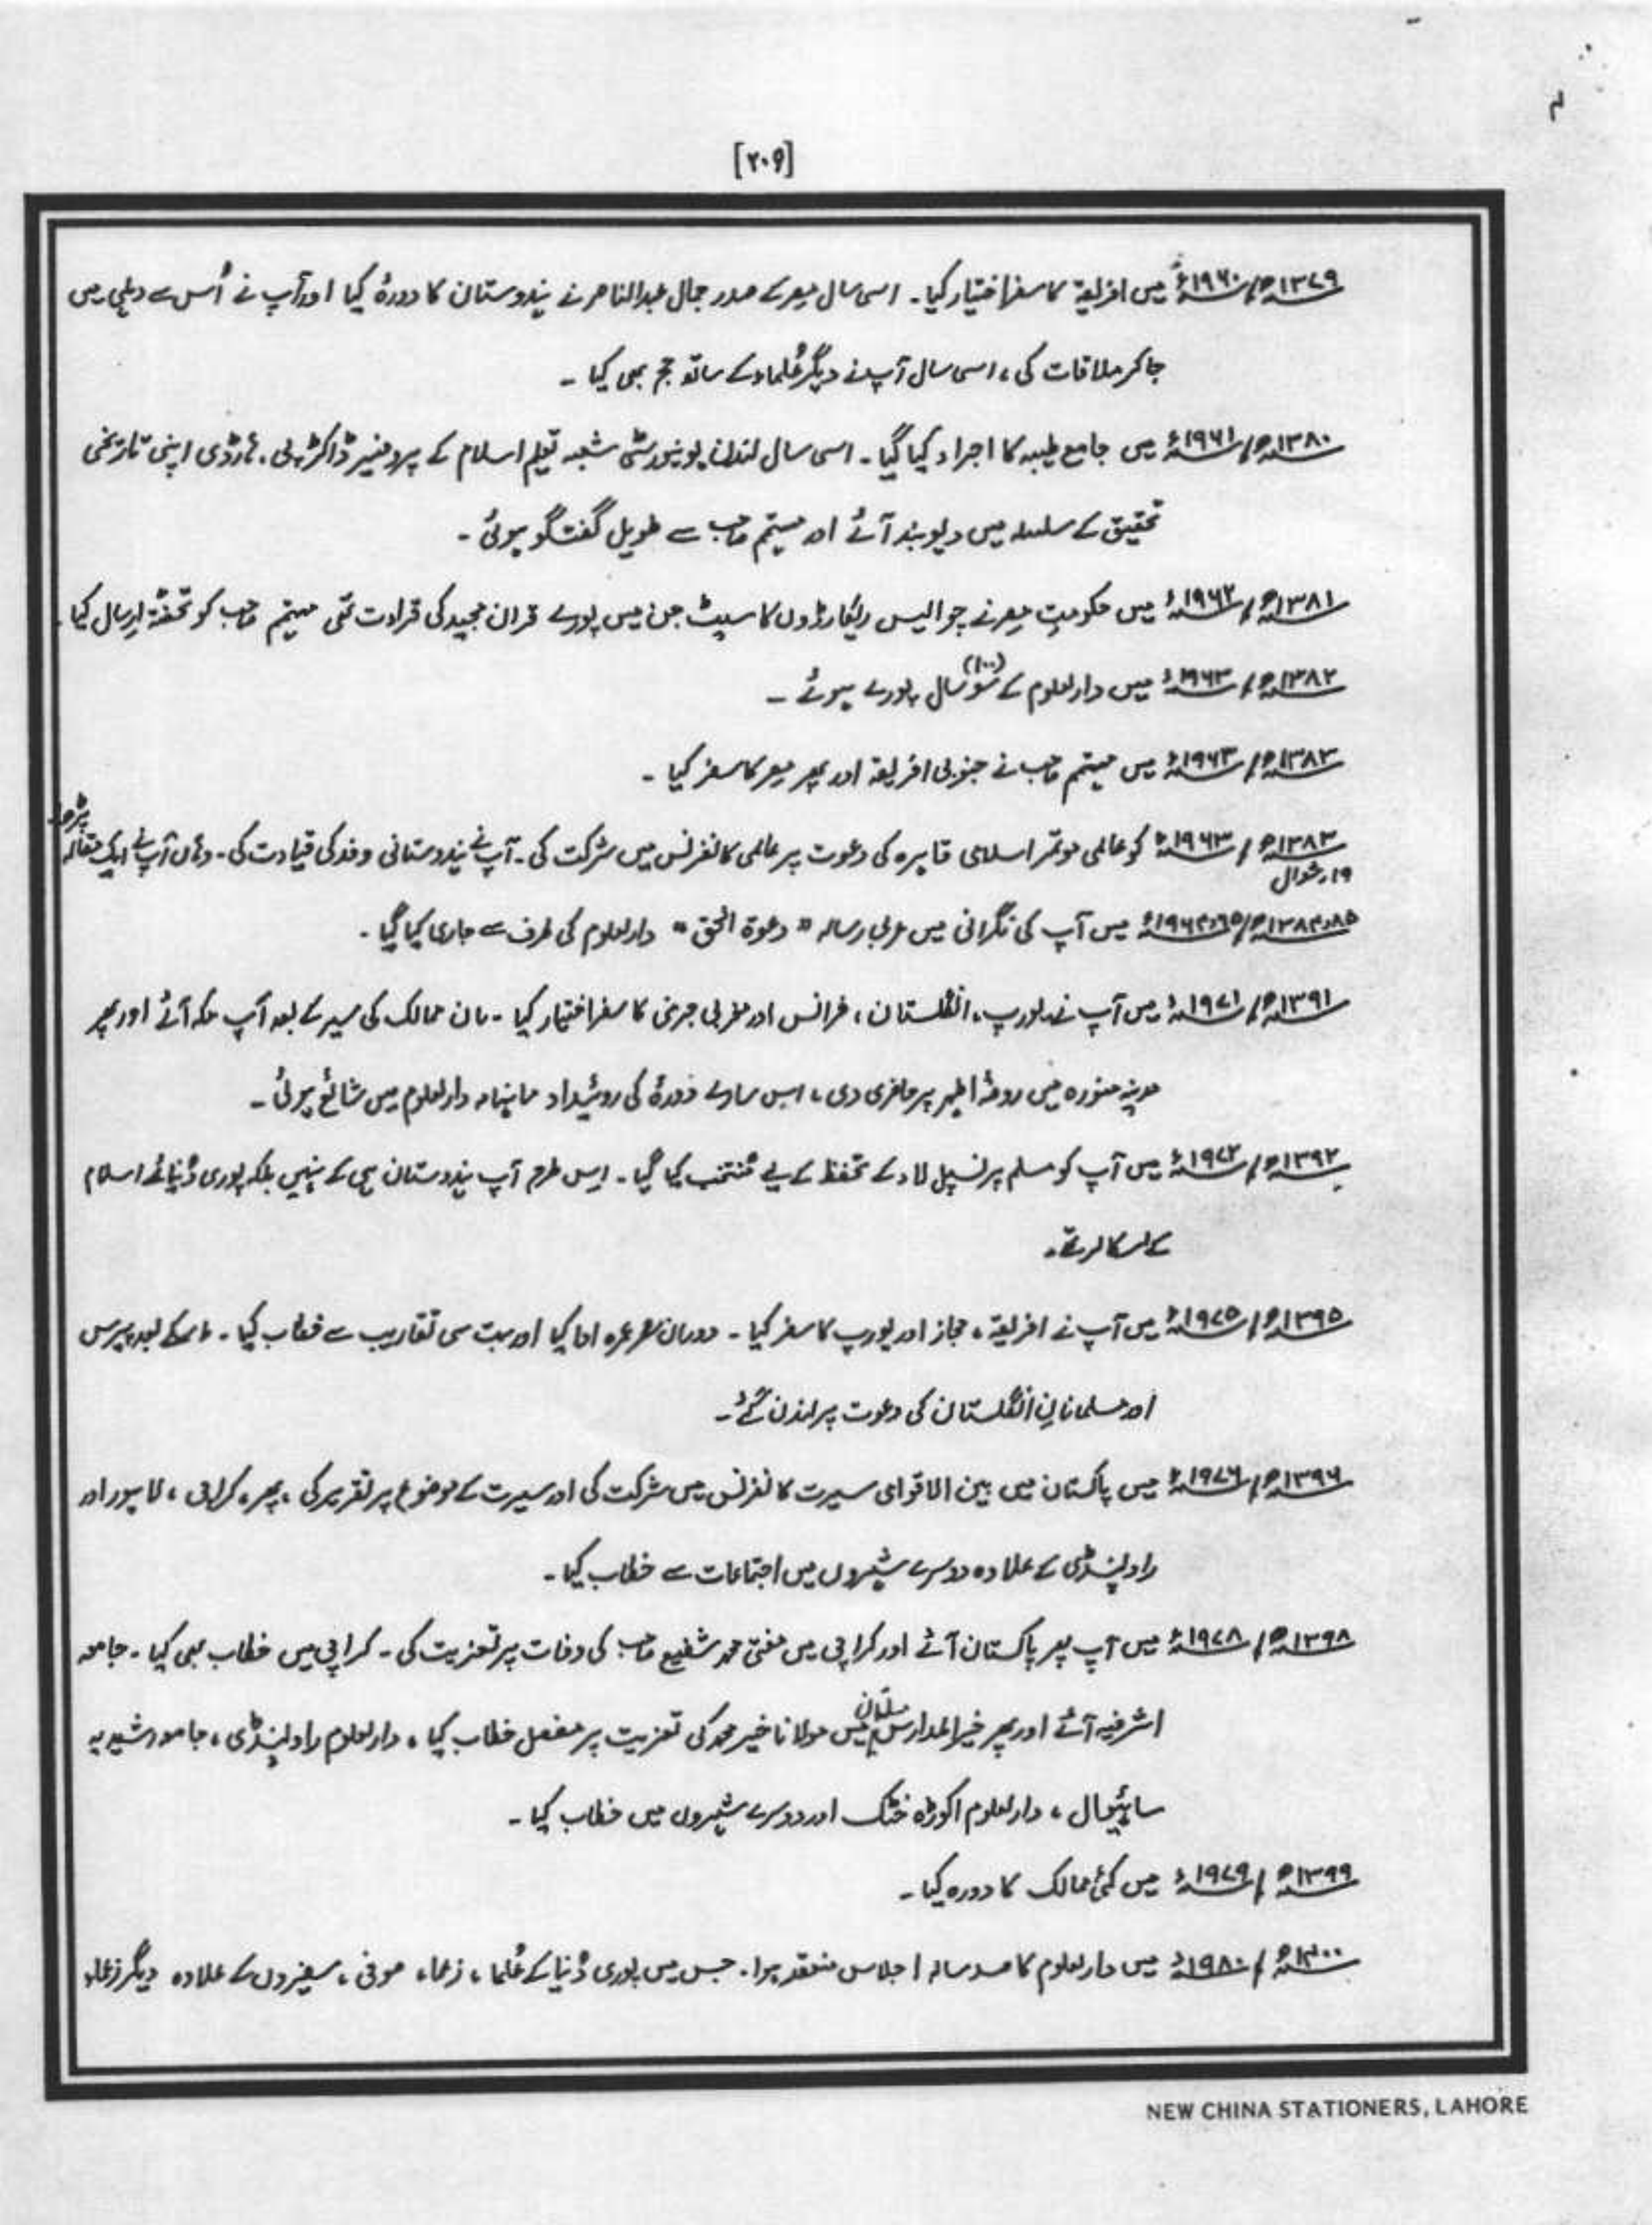 [۲۰۹]
۱۳۷۹ھ/۱۹۶۰ء میں افریقہ کا سفر اختیار کیا۔ اسی سال مصر کے صدر جمال عبدالناصر نے ہندوستان کا دورۂ کیا اور آپ نے اُس سے دہلی میں
جا کر ملاقات کی، اسی سال آپ نے دیگر عُلماء کے ساتھ حج بھی کیا ۔
۱۳۸۰ھ/۱۹۶۱ء میں جامع طیبہ کا اجراء کیا گیا۔ اسی سال لندن یونیورسٹی شعبہ تعلیم اسلام کے پروفیسر ڈاکٹر پی۔ ہارڈی اپنی تاریخی
تحقیق کے سلسلہ میں دیوبند آئے اور مہتمم صاحب سے طویل گفتگو ہوئی ۔
۱۳۸۱ھ/۱۹۶۲ء میں حکومتِ مصر نے چوالیس ریکارڈوں کا سیٹ جن میں پورے قران مجید کی قرأت تھی مہتمم صاحب کو تحفتۃً ارسال کیا۔
۱۳۸۲ھ/۱۹۶۳ء میں دارالعلوم کے سَو (۱۰۰) سال پورے ہوئے ۔
۱۳۸۳ھ/۱۹۶۳ء میں مہتمم صاحب نے جنوبی افریقہ اور پھر مصر کا سفر کیا ۔
۱۳۸۳ھ/۱۹۶۳ء کو عالمی موتمر اسلامی قاہرہ کی دعوت پر عالمی کانفرنس میں شرکت کی۔ آپ نے ہندوستانی وفد کی قیادت کی۔ وہاں آپ نے ایک مقالہ پڑھا۔
۱۹۔شوال
۱۳۸۴،۸۵ھ/۱۹۶۴،۶۵ء میں آپ کی نگرانی میں عربی رسالہ "دعوۃ الحق" دارالعلوم کی طرف سے جاری کیا گیا۔
۱۳۹۱ھ/۱۹۷۱ء میں آپ نے یورپ، انگلستان، فرانس اور مغربی جرمنی کا سفر اختیار کیا ۔ ان ممالک کی سیر کے بعد آپ مکہ آئے اور پھر
مدینہ منورہ میں روضۂ اطہر پر حاضری دی، اس سارے دورۂ کی روئیداد ماہنامہ دارالعلوم میں شائع ہوئی ۔
۱۳۹۲ھ/۱۹۷۲ء میں آپ کو مسلم پرنسپل لاء کے تحفظ کے لیے مُنتخب کیا گیا۔ اِس طرح آپ ہندوستان ہی کے نہیں بلکہ پوری دُنیائے اسلام
کے سکالر تھے۔
۱۳۹۵ھ/۱۹۷۵ء میں آپ نے افریقہ، حجاز اور یورپ کا سفر کیا ۔ دورانِ سفر عمرہ ادا کیا اور بہت سی تقاریب سے خطاب کیا ۔ اس کے بعد پیرس
اور مسلمانانِ انگلستان کی دعوت پر لندن گئے ۔
۱۳۹۶ھ/۱۹۷۶ء میں پاکستان میں بین الاقوامی سیرت کانفرنس میں شرکت کی اور سیرت کے موضوع پر تقریر کی، پھر، کراچی، لاہور اور
راولپنڈی کے علاوہ دوسرے شہروں میں اجتماعات سے خطاب کیا ۔
۱۳۹۸ھ/۱۹۷۸ء میں آپ پھر پاکستان آئے اور کراچی میں مفتی محمد شفیع صاحب کی وفات پر تعزیت کی ۔ کراچی میں خطاب بھی کیا ۔ جامعہ
اشرفیہ آئے اور پھر خیر المدارس ملتان میں مولانا خیر محمد کی تعزیت پر مفصل خطاب کیا، دارالعلوم راولپنڈی، جامعہ رشیدیہ
ساہیوال، دارالعلوم اکوڑہ خٹک اور دوسرے شہروں میں خطاب کیا ۔
۱۳۹۹ھ/۱۹۷۹ء میں کئی ممالک کا دورہ کیا ۔
۱۴۰۰ھ/۱۹۸۰ء میں دارالعلوم کا صد سالہ اجلاس منعقد ہوا۔ جس میں پوری دُنیا کے عُلما، زعما، صوفی، سفیروں کے علاوہ دیگر زعماء
NEW CHINA STATIONERS, LAHORE